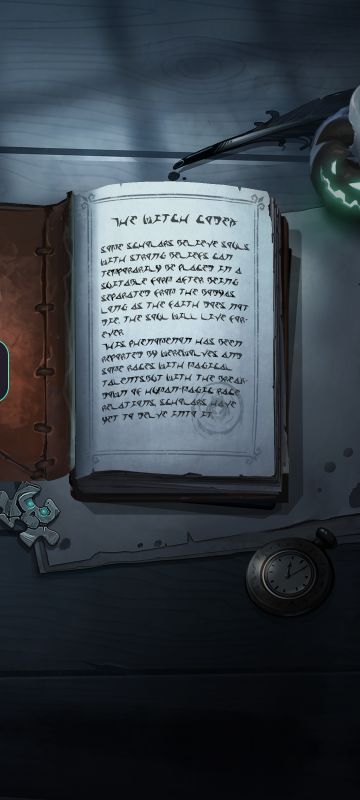 THE WITCH CODEX
SOME SCHOLARS BELIEVE SOULS
WITH STRONG BELIEFS CAN
TEMPORARILY BE PLACED IN A
SUITABLE FORM AFTER BEING
SEPARATED FROM THE BODY AS
LONG AS THE FAITH DOES NOT
DIE, THE SOUL WILL LIVE FOR-
EVER.
THIS PHENOMENON HAS BEEN
REPORTED BY WEREWOLVES AND
SOME RACES WITH MAGICAL
TALENTS BUT WITH THE BREAK-
DOWN OF HUMAN-MAGIC RACE
RELATIONS, SCHOLARS HAVE
YET TO DELVE INTO IT.